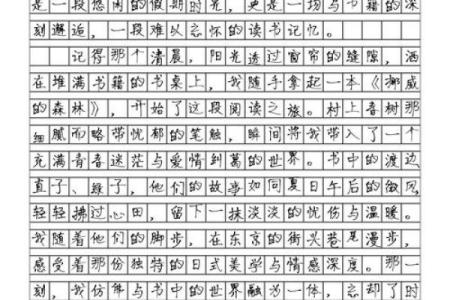 是一段悠闲的假期时光,更是一场与书籍的深
刻邂逅,一段难以忘怀的读书记忆。
记得那个清晨,阳光透过窗帘的缝隙,洒
在堆满书籍的书桌上,我随手拿起一本《挪威
的森林》,开始了这段阅读之旅。村上春树那
细腻而略带忧郁的笔触,瞬间将我带入了一个
充满青春迷茫与爱情纠葛的世界。书中的渡边
直子、绿子,他们的故事如同夏日午后的微风
轻轻拂过心田,留下一抹淡淡的忧伤与温暖。
我随着他们的脚步,在东京的街头巷尾漫步,
感受着那份独特的日式美学与情感深度。那一时
刻,我仿佛与书中的世界融为一体,忘却了时